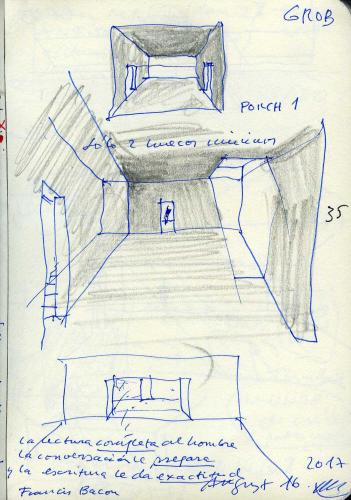 GROB
PORCH 1
Sólo 2 huecos mínimos
35
La lectura completa al hombre
la conversación le prepara
y la escritura le da exactitud
August 16. 2017
Francis Bacon